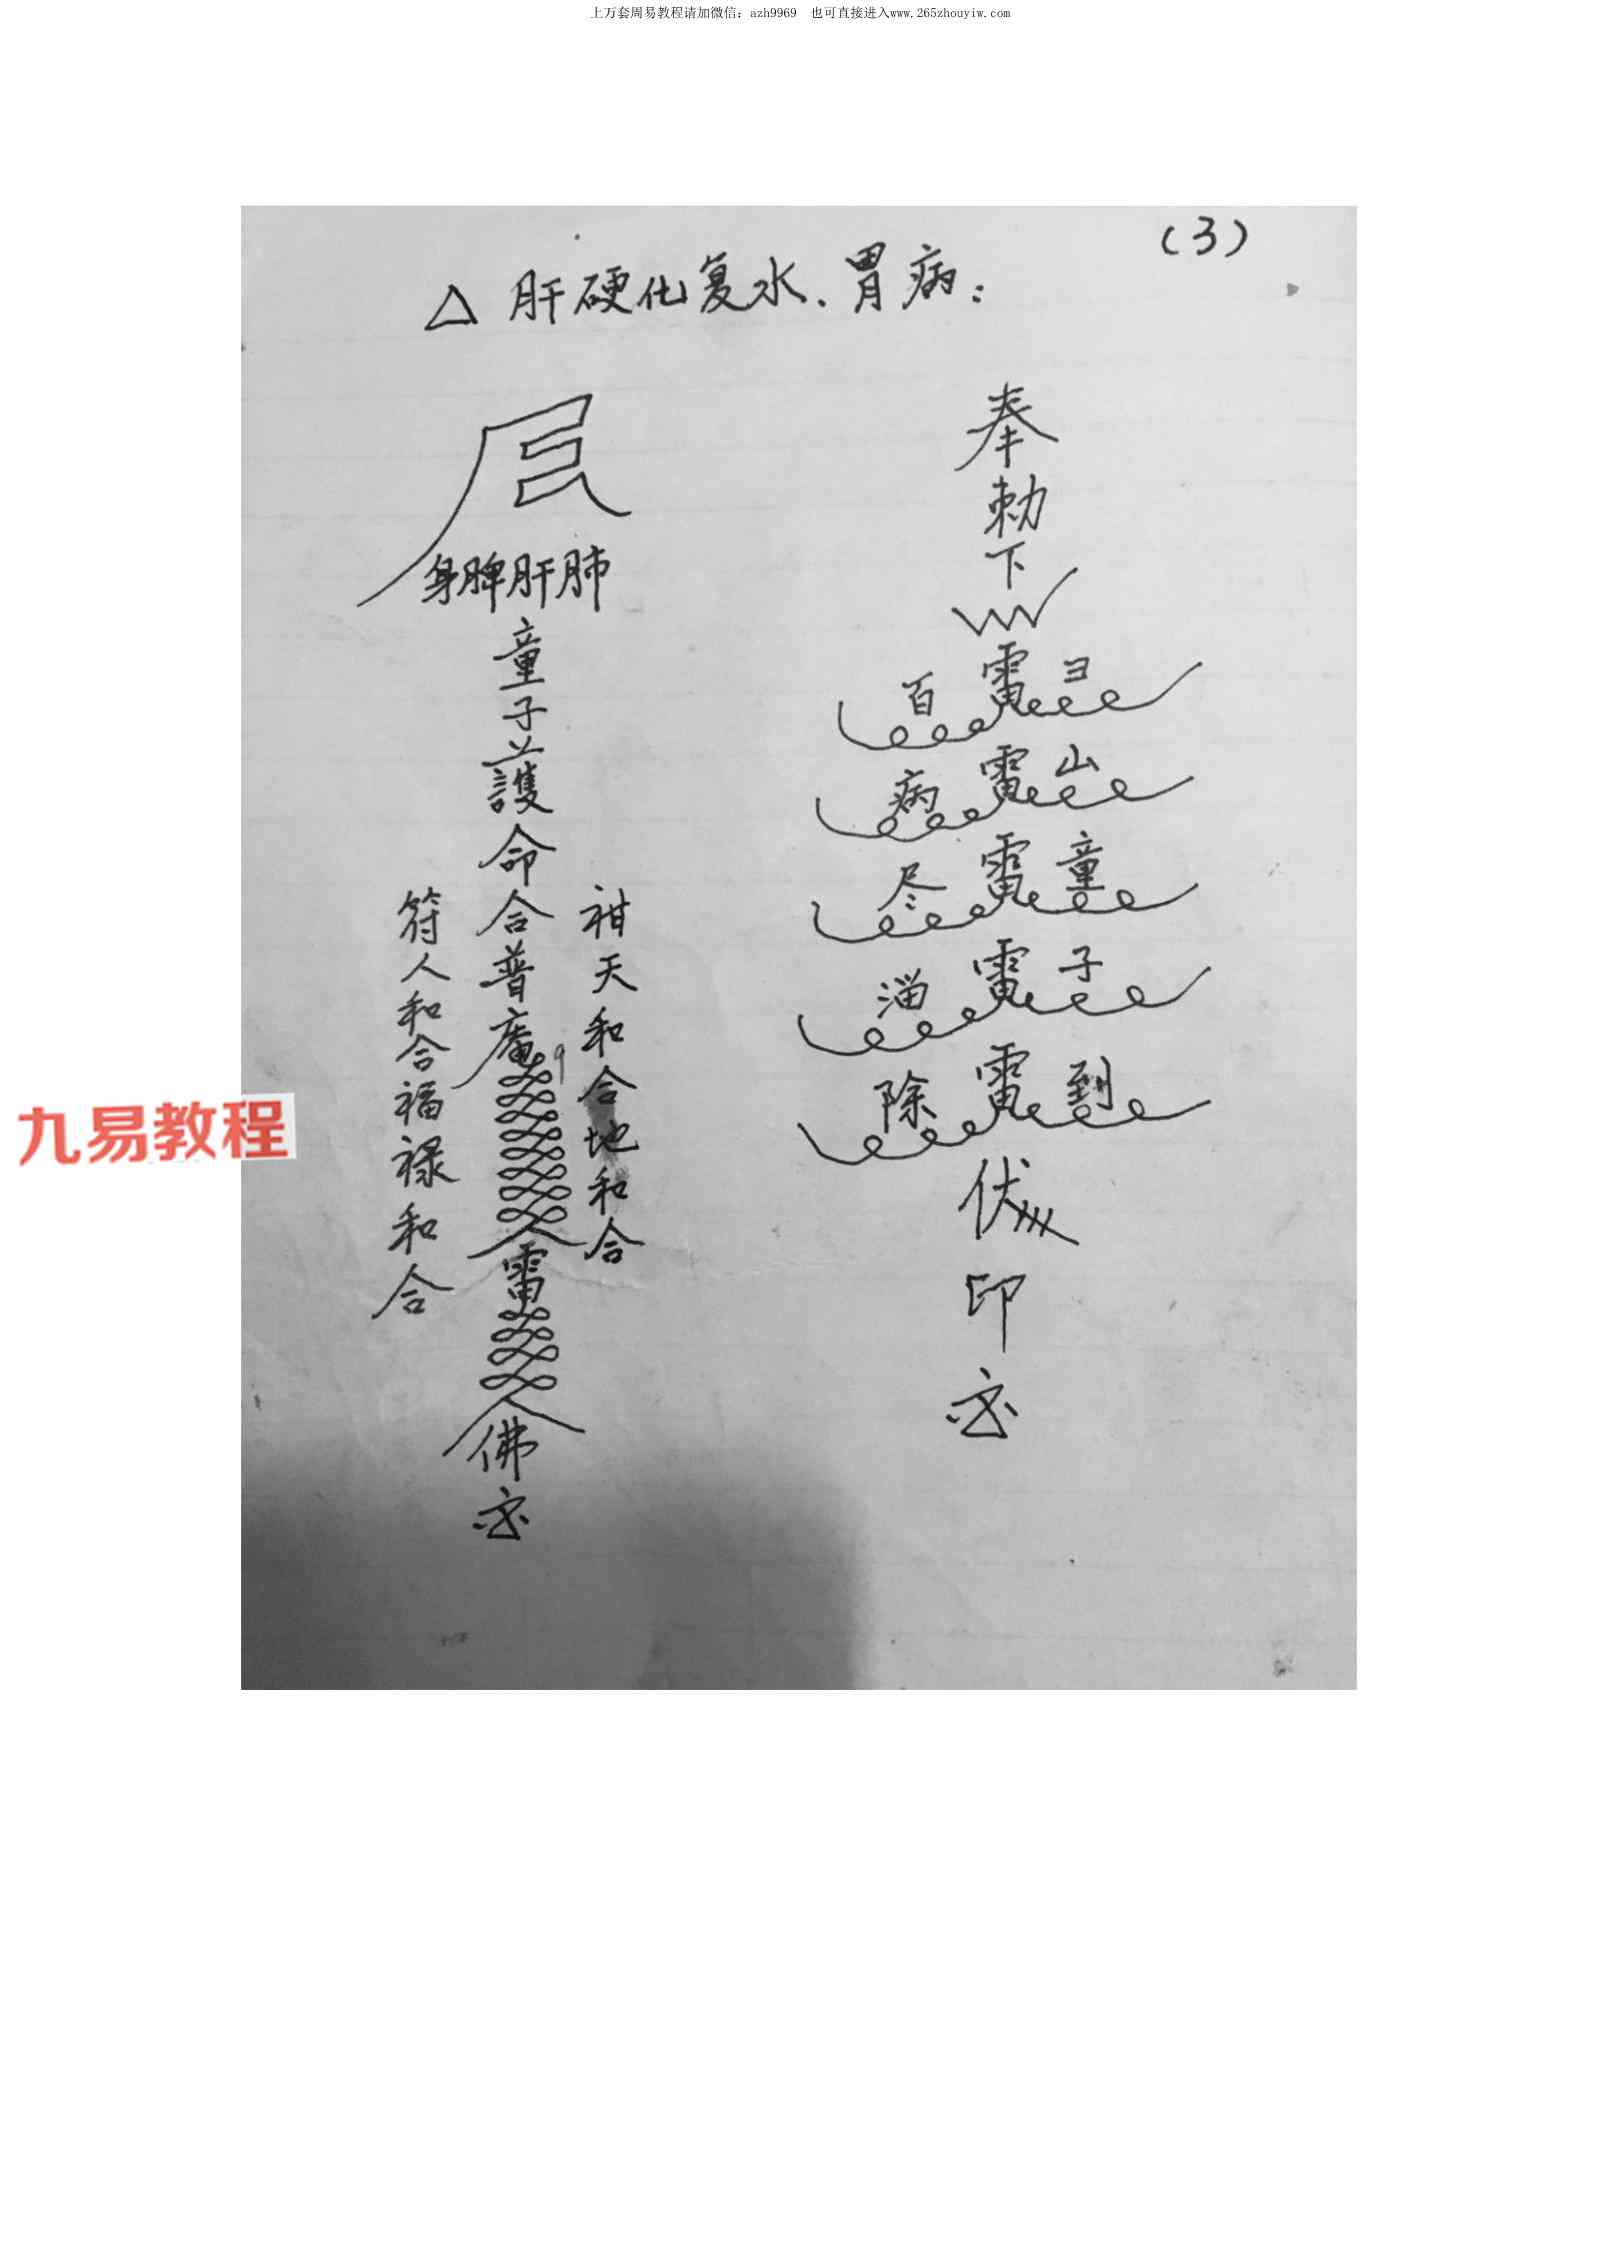 上万套周易教程请加微信：azh9969　也可直接进入www.265zhouyiw.com
(3)
△ 肝硬化复水、胃病：
奉勅下
雷雷雷雷雷
ヨ山童子到
百病尽淄除
伏印
身脾肝肺
童子護命合普庵
雷
佛
天和合地和合
符人和合福禄和合
九易教程